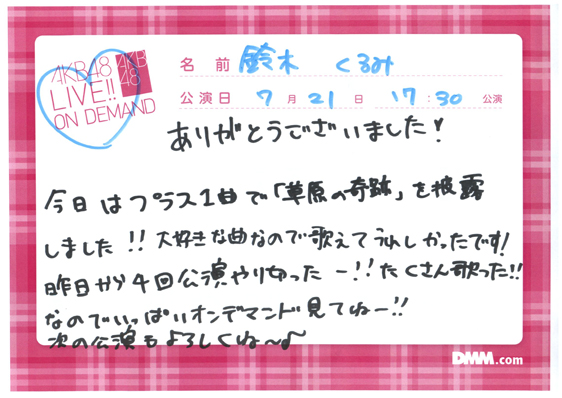 AKB48
LIVE!!
ON DEMAND
AKB
48
名前 鈴木 くるみ
公演日 7月21日 17:30公演
ありがとうございました!
今日はプラス1曲で「草原の奇跡」を披露
しました!!大好きな曲なので歌えてうれしかったです!
昨日から4回公演やり切ったー!!たくさん歌った!!
なのでいっぱいオンデマンド見てねー!!
次の公演もよろしくね〜♪
DMM.com